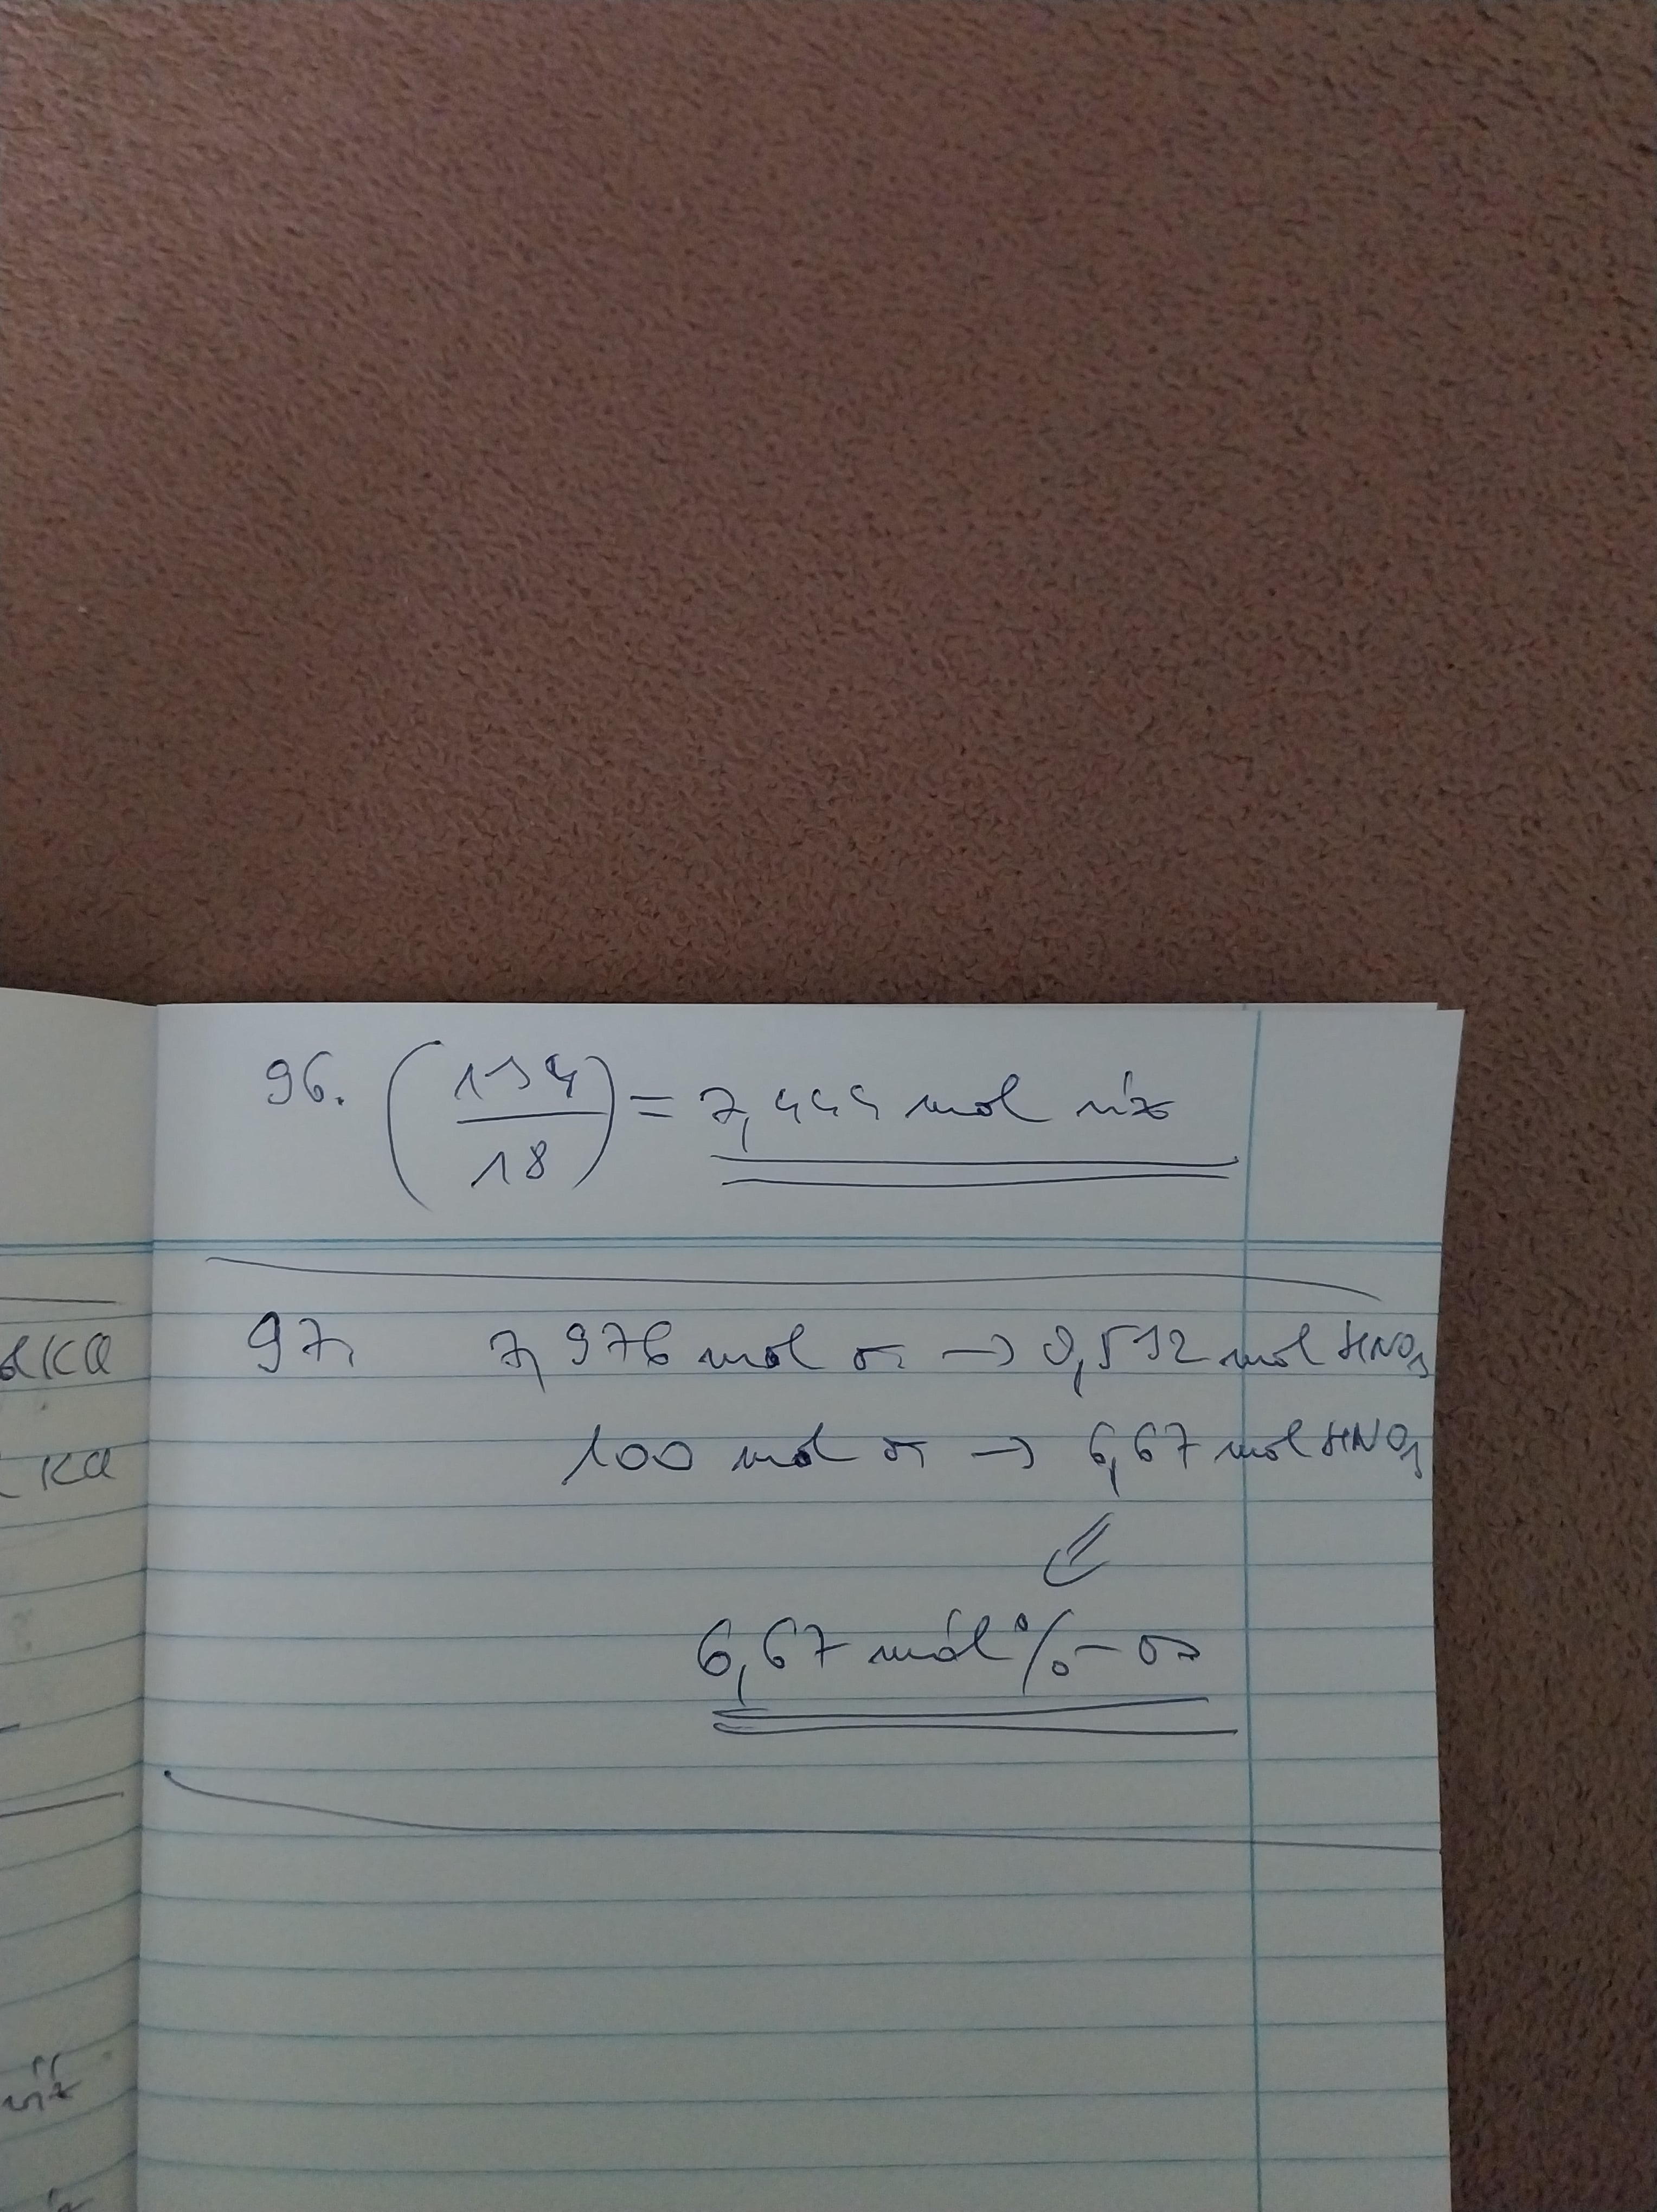 96. (134/18) = 7,444 mol víz
97, 7,976 mol o. → 0,532 mol HNO3
100 mol o. → 6,67 mol HNO3
6,67 mól%-os
KCl
KCl
víz